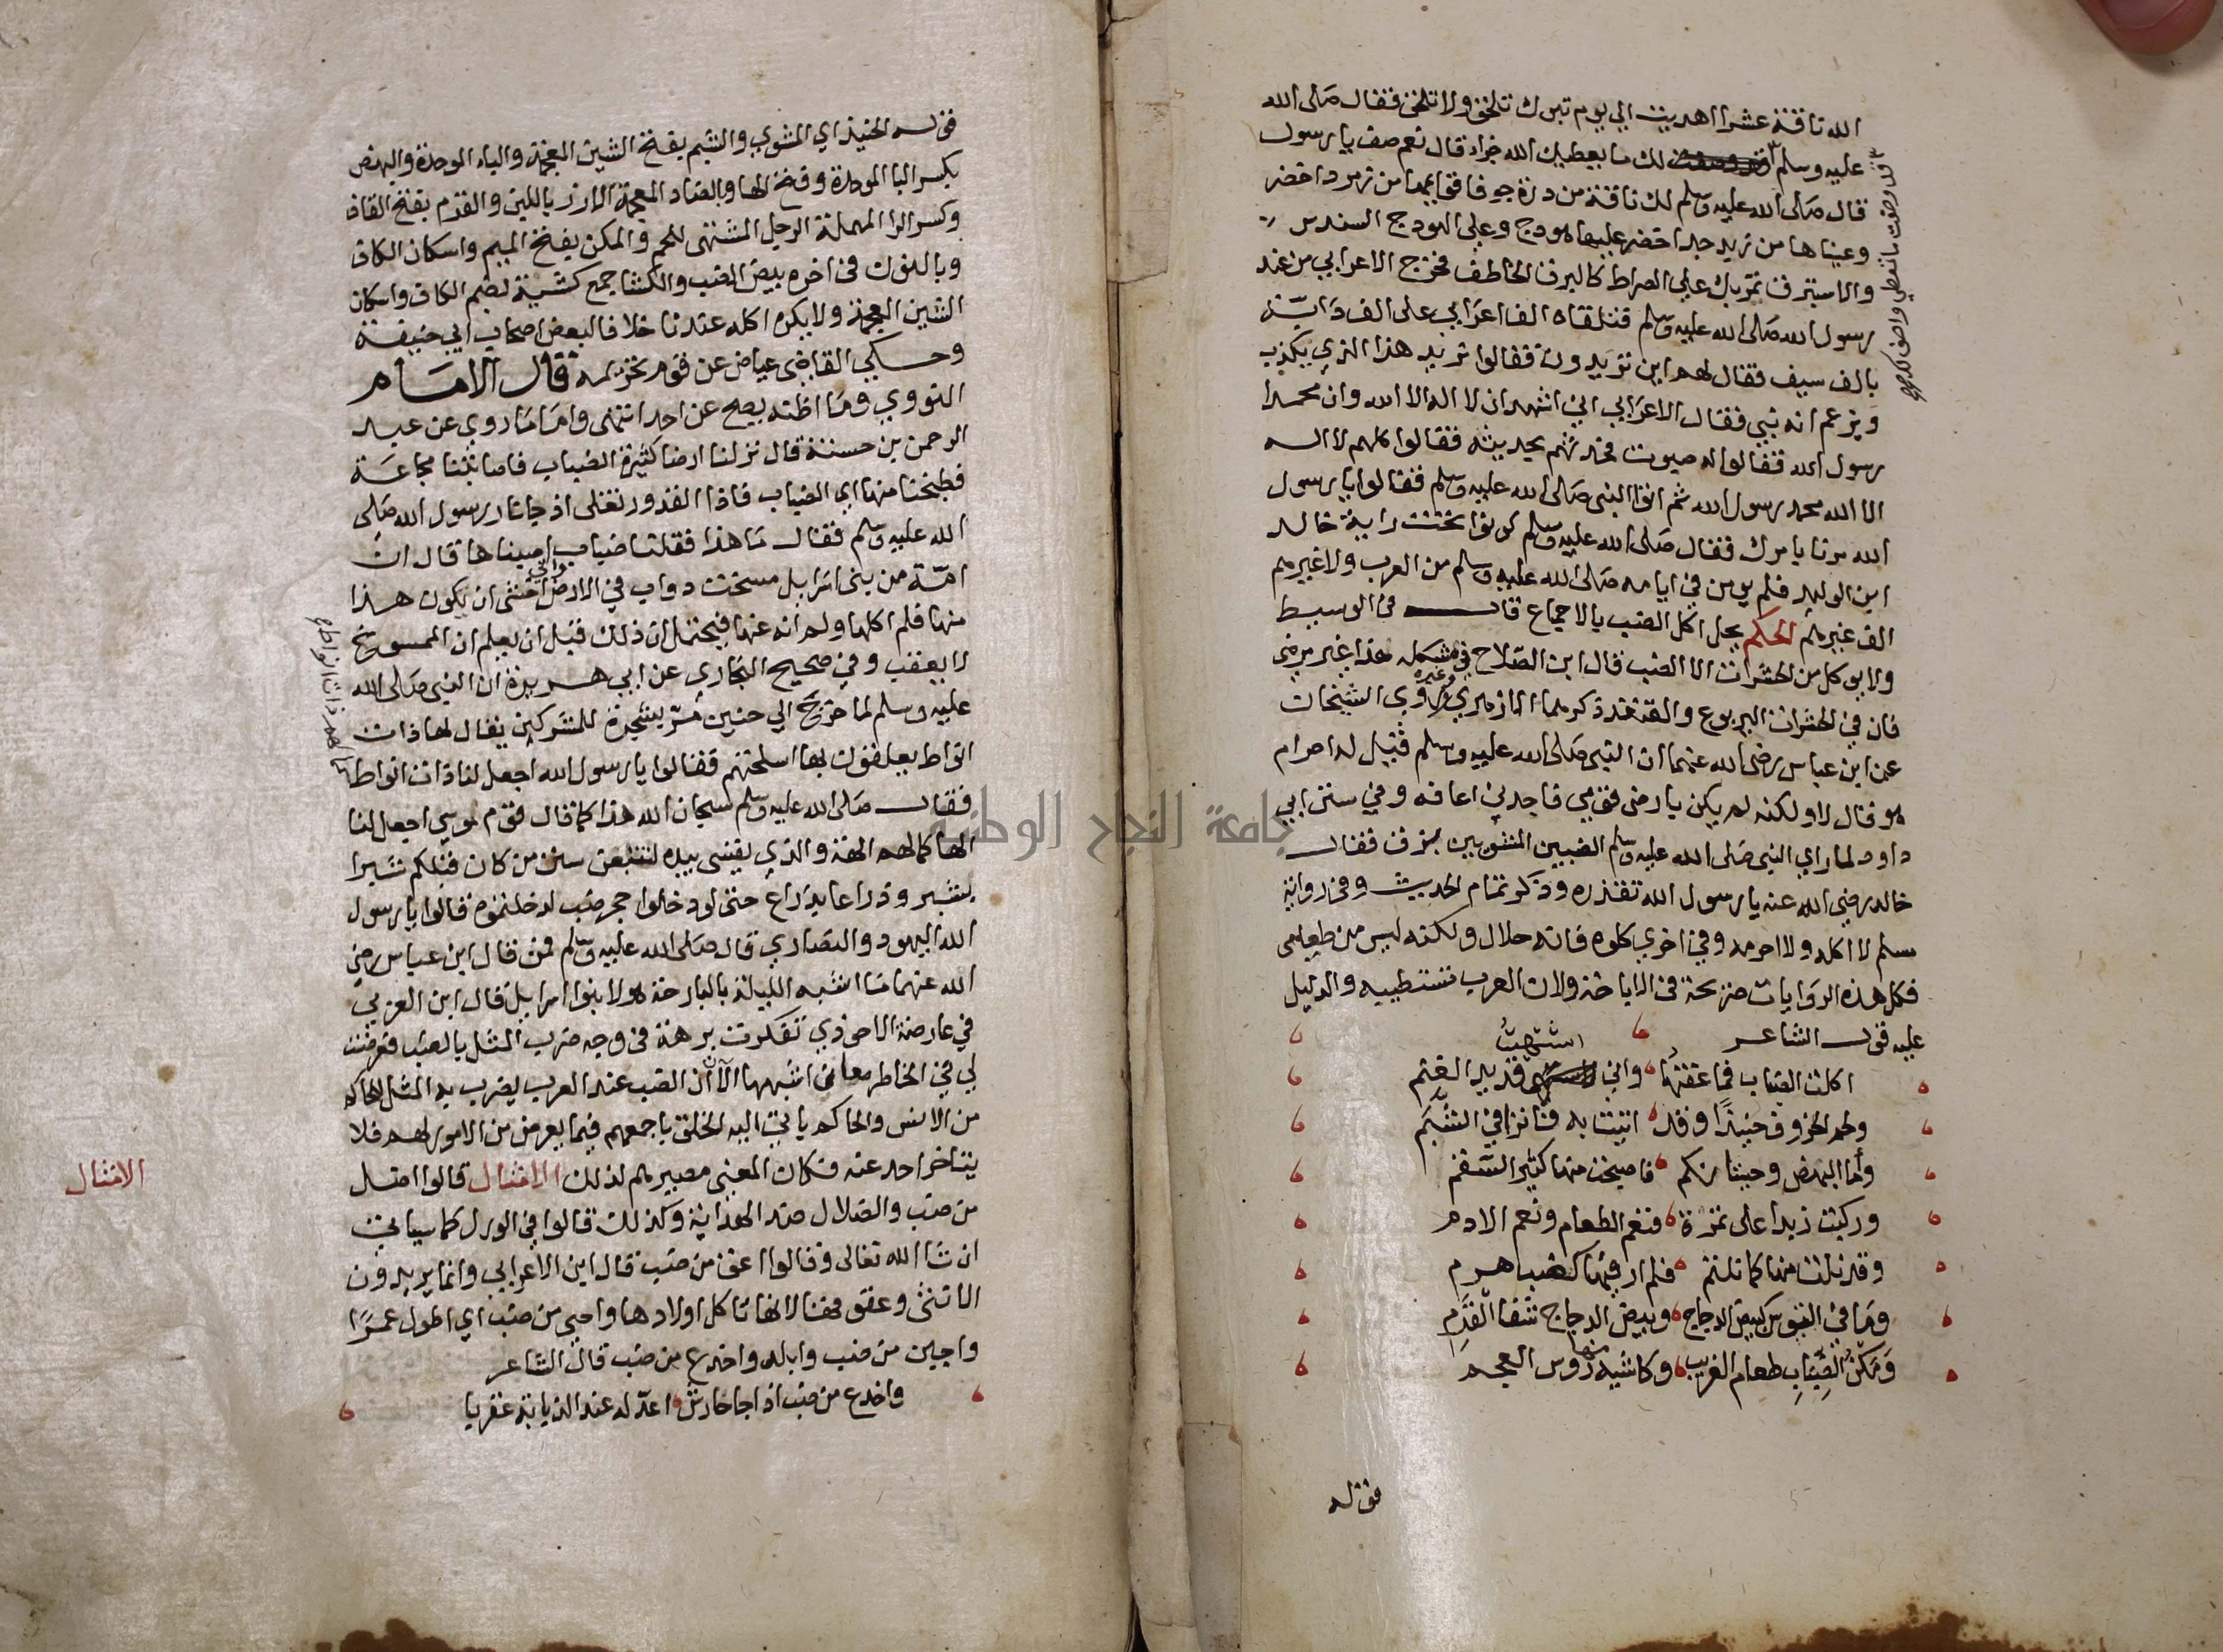 الله ناقة عشرا اهديت الي يوم تبوك تلحق ولا تلحق فقال صلى الله
عليه وسلم لك ما يعطيك الله جزاء قال نعم صف يا رسول
قال صلى الله عليه وسلم لك ناقة من درة جوفا قوايمها من زمرد اخضر
وعيناها من زبرجد اخضر عليها هودج وعلى الهودج السندس
والاستبرق تمر بك على الصراط كالبرق الخاطف فخرج الاعرابي من عند
رسول الله صلى الله عليه وسلم فتلقاه الف اعرابي على الف دابة
بالف سيف فقال لهم اين تريدون فقالوا نريد هذا الذي يكذب
ويزعم انه نبي فقال الاعرابي اني اشهد ان لا اله الا الله وان محمدا
رسول الله فقالوا له صبوت فحدثهم بحديثه فقالوا كلهم لا اله
الا الله محمد رسول الله ثم اتوا النبي صلى الله عليه وسلم فقالوا يا رسول
الله مرنا بامرك فقال صلى الله عليه وسلم كونوا تحت راية خالد
ابن الوليد فلم يومن في ايامه صلى الله عليه وسلم من العرب ولا غيرهم
الف غيرهم الحكم يحل اكل الضب بالاجماع قال في الوسيط
ولا يوكل من الحشرات الا الضب قال ابن الصلاح في مشكله هذا غير مرضي
فان في الحشرات اليربوع والقنفذ ذكرهما الازهري وغيره وروي الشيخان
عن ابن عباس رضي الله عنهما ان النبي صلى الله عليه وسلم قيل له احرام
هو قال لا ولكنه لم يكن بارض قومي فاجدني اعافه وفي سنن ابي
داود لما راي النبي صلى الله عليه وسلم الضبين المشويين بزق فقال
خالد رضي الله عنه يا رسول الله تقذره وذكر تمام الحديث وفي رواية
مسلم لا اكله ولا احرمه وفي اخري كلوه فانه حلال ولكنه ليس من طعامي
فكل هذه الروايات صريحة في الاباحة ولان العرب تستطيبه والدليل
عليه قول الشاعر
اكلت الضباب فما عفتها واني اشتهيت قديد الغنم
ولحم الخروف حنيذا وقد اتيت به فاترا في الشبم
واما البهض وحيتانكم فاصبحت منها كثير السقم
وركبت زبدا على تمرة فنعم الطعام ونعم الادم
وقد نلت منها كما نلتم فلم ار فيها كضب هرم
وما في البيوض كبيض الدجاج وبيض الدجاج شفا القرم
ومكن الضباب طعام الغريب وكاشيه منها روس العجم
قوله
قوله الحنيذ اي المشوي والشبم بفتح الشين المعجمة والباء الموحدة والبهض
بكسر البا الموحدة وفتح الها وبالضاد المعجمة الارز باللبن والقرم بفتح القاف
وكسر الرا المهملة الرجل المشتهى للحم والمكن بفتح الميم واسكان الكاف
وبالنون في اخره بيض الضب والكشا جمع كشية بضم الكاف واسكان
الشين المعجمة ولا يكره اكله عندنا خلافا لبعض اصحاب ابي حنيفة
وحكي القاضي عياض عن قوم تحريمه قال الامام
النووي وما اظنه يصح عن احد انتهى واما ما روي عن عبد
الرحمن بن حسنة قال نزلنا ارضا كثيرة الضباب فاصابتنا مجاعة
فطبخنا منها اي الضباب فاذا القدور تغلى اذ جانا رسول الله صلى
الله عليه وسلم فقال ما هذا فقلنا ضباب اصبناها قال ان
امة من بني اسرايل مسخت دواب في الارض واني اخشى ان يكون هذا
منها فلم اكلها ولم انه عنها فيحتمل ان ذلك قبل ان يعلم ان الممسوخ
لا يعقب وفي صحيح البخاري عن ابي هريرة ان النبي صلى الله
عليه وسلم لما خرج الي حنين مر بشجرة للمشركين يقال لها ذات
انواط يعلقون بها اسلحتهم فقالوا يا رسول الله اجعل لنا ذات انواط
فقال صلى الله عليه وسلم سبحان الله هذا كما قال قوم موسى اجعل لنا
الها كما لهم الهة والذي نفسي بيده لتتبعن سنن من كان قبلكم شبرا
بشبر وذراعا بذراع حتى لو دخلوا جحر ضب لدخلتموه قالوا يا رسول
الله اليهود والنصاري قال صلى الله عليه وسلم فمن قال ابن عباس رضي
الله عنهما ما اشبه الليلة بالبارحة هولا بنوا اسرايل قال ابن العربي
في عارضة الاحوذي تفكرت برهة في وجه ضرب المثل بالضب فعرضت
لي في الخاطر معاني اشبهها الآن ان الضب عند العرب يضرب به المثل للحاكم
من الانس والحاكم ياتي اليه الخلق باجمعهم فيما يعرض من الامور لهم فلا
يتاخر احد عنه فكان المعني مصيرهم لذلك الامثال قالوا اضل
من ضب والضلال ضد الهداية وكذلك قالوا في الورل كما سياتي
ان شا الله تعالى وقالوا اعق من ضب قال ابن الاعرابي وانما يريدون
الانثى وعقوقها لانها تاكل اولادها واحيى من ضب اي اطول عمرا
واجبن من ضب وابله واخدع من ضب قال الشاعر
واخدع من ضب اذا جا حارش اعد له عند الذبابة عقربا
الامثال
كما لهم ذات انواط